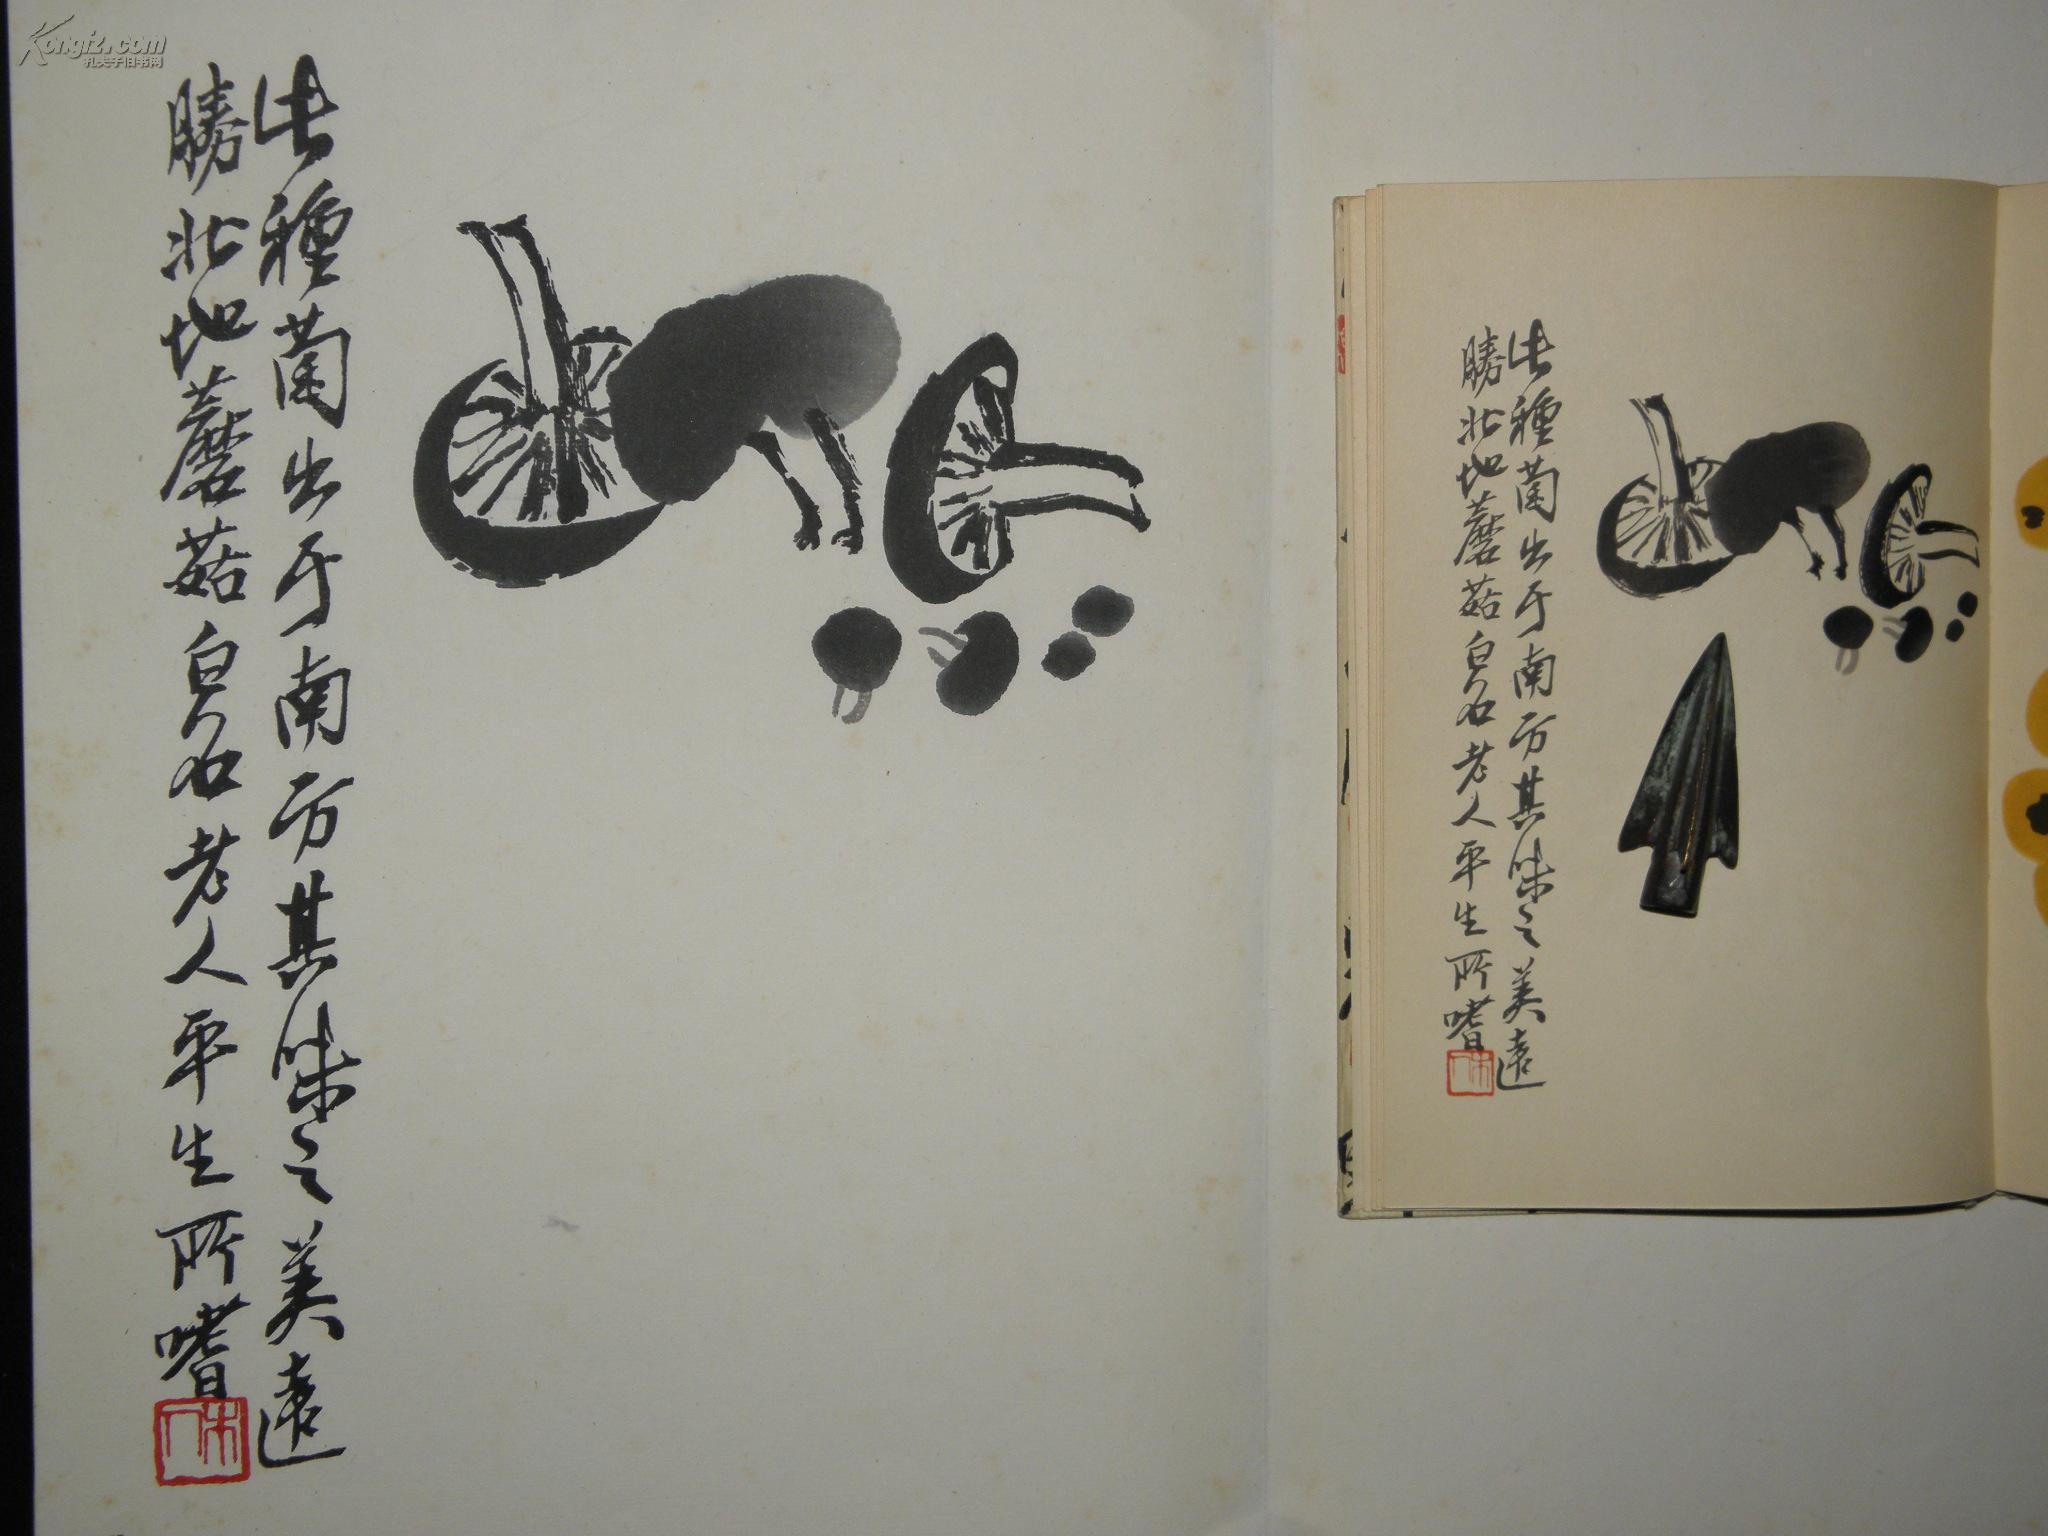 Kongfz.com
孔夫子旧书网
此種菌出于南方其味之美遠
勝北地蘑菇白石老人平生所嗜
木人
此種菌出于南方其味之美遠
勝北地蘑菇白石老人平生所嗜
木人